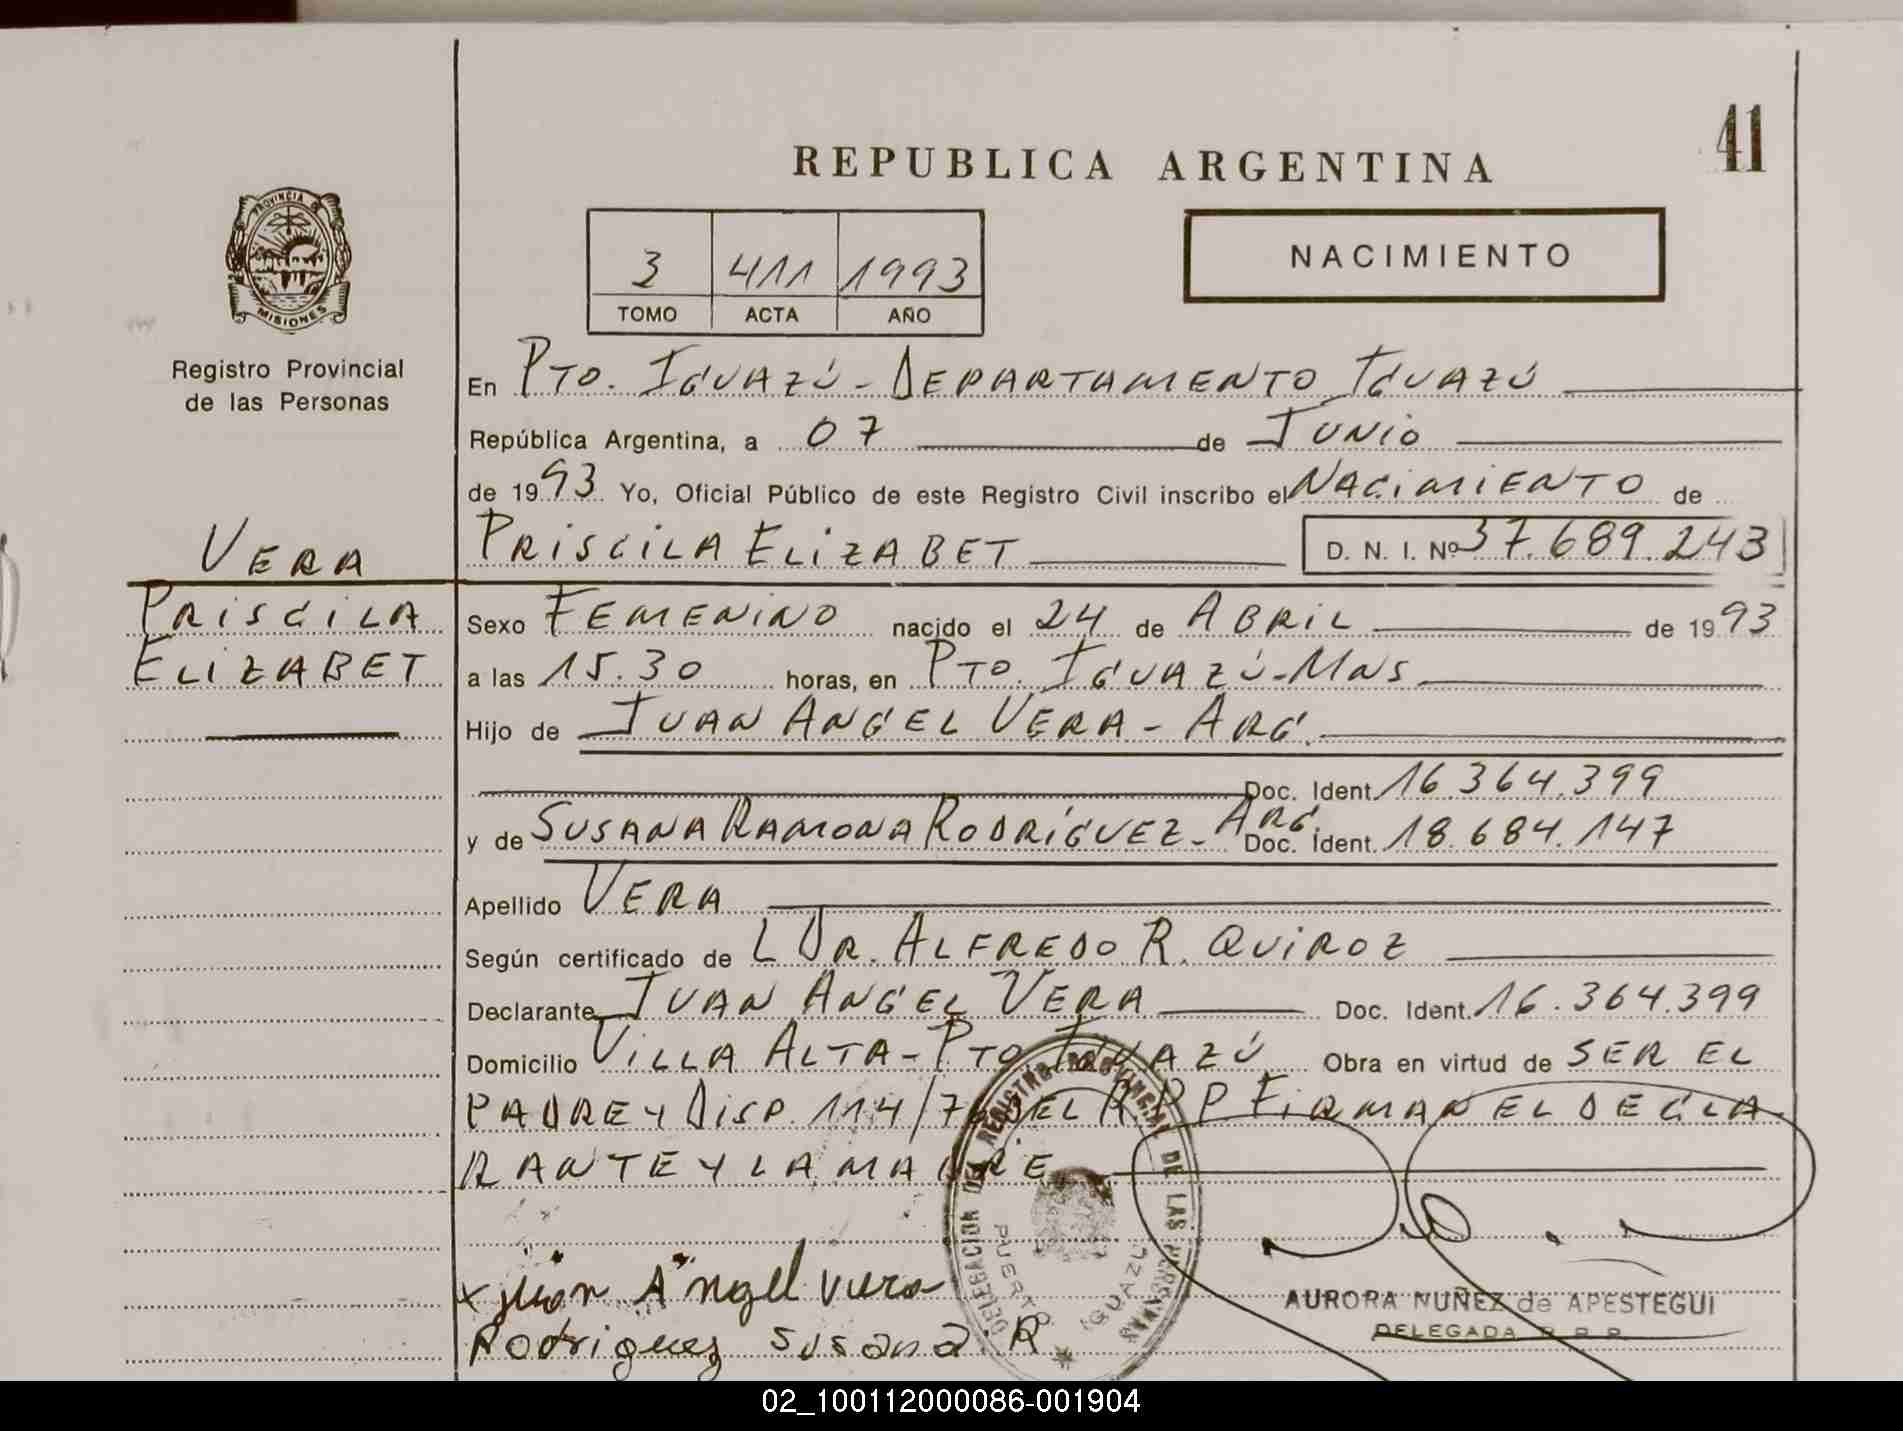 41
REPUBLICA ARGENTINA
PROVINCIA DE
MISIONES
Registro Provincial
de las Personas
3 411 1993
TOMO ACTA AÑO
NACIMIENTO
En PTO. IGUAZÚ - DEPARTAMENTO IGUAZÚ
República Argentina, a 07 de JUNIO
de 1993 Yo, Oficial Público de este Registro Civil inscribo el NACIMIENTO de
VERA
PRISCILA ELIZABET D. N. I. Nº 37.689.243
PRISCILA
ELIZABET
Sexo FEMENINO nacido el 24 de ABRIL de 1993
a las 15.30 horas, en PTO. IGUAZÚ - MNS
Hijo de JUAN ANGEL VERA - ARG.
Doc. Ident. 16.364.399
y de SUSANA RAMONA RODRÍGUEZ - ARG. Doc. Ident. 18.684.147
Apellido VERA
Según certificado de L DR. ALFREDO R. QUIROZ
Declarante JUAN ANGEL VERA Doc. Ident. 16.364.399
Domicilio VILLA ALTA - PTO IGUAZÚ Obra en virtud de SER EL
PADRE Y DISP. 114/76 DEL R P P FIRMAN EL DECLA
RANTE Y LA MADRE
DELEGACION DEL REGISTRO PROVINCIAL DE LAS PERSONAS
PUERTO IGUAZU
x Juan Angel Vera
Rodriguez Susana R
AURORA NUÑEZ de APESTEGUI
DELEGADA R. P. P.
02_100112000086-001904